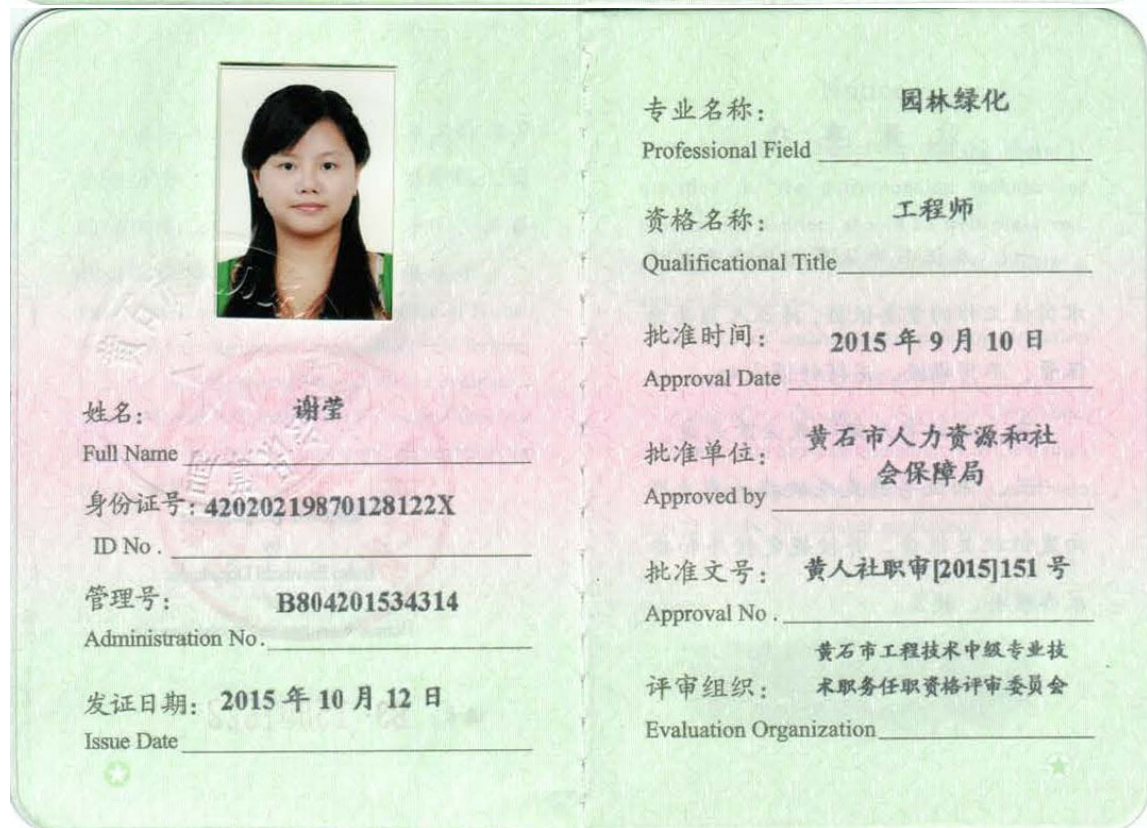 姓名： 谢莹
Full Name
身份证号：42020219870128122X
ID No .
管理号： B804201534314
Administration No.
发证日期： 2015 年 10 月 12 日
Issue Date
专业名称： 园林绿化
Professional Field
资格名称： 工程师
Qualificational Title
批准时间： 2015 年 9 月 10 日
Approval Date
批准单位： 黄石市人力资源和社
会保障局
Approved by
批准文号： 黄人社职审[2015]151 号
Approval No .
黄石市工程技术中级专业技
评审组织： 术职务任职资格评审委员会
Evaluation Organization